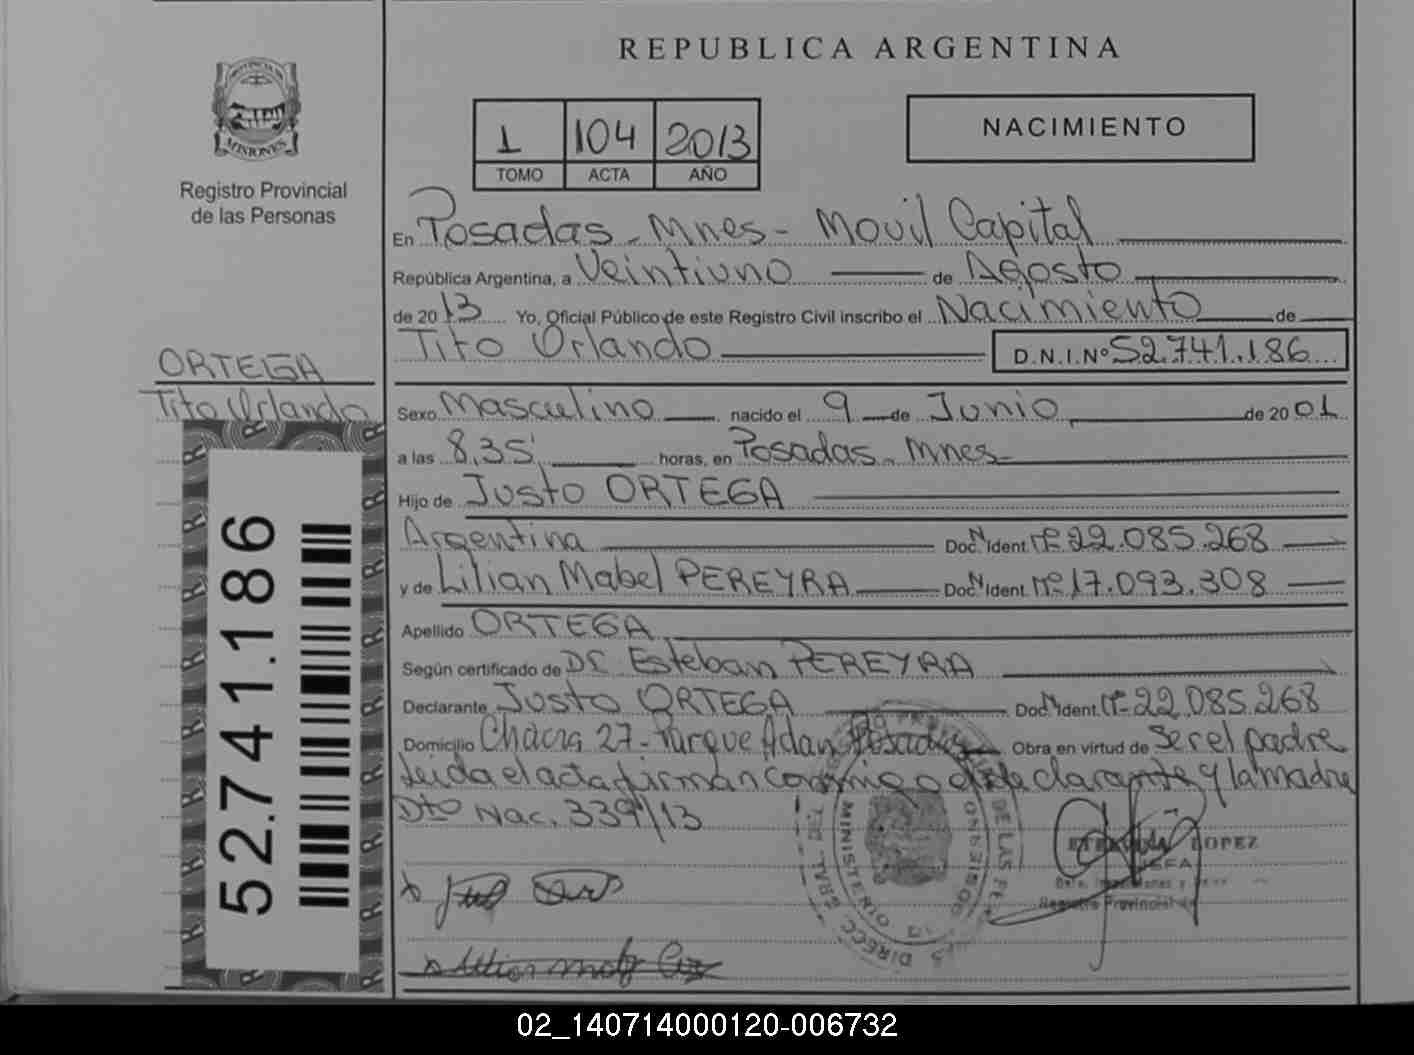 REPUBLICA ARGENTINA
PROVINCIA DE
MISIONES
Registro Provincial
de las Personas
1 104 2013
TOMO ACTA AÑO
NACIMIENTO
En Posadas - Mnes - Movil Capital
República Argentina, a Veintiuno de Agosto
de 2013 Yo, Oficial Público de este Registro Civil inscribo el Nacimiento de
Tito Orlando D.N.I.Nº 52.741.186
ORTEGA
Tito Orlando
Sexo Masculino nacido el 9 de Junio de 2001
a las 8,35' horas, en Posadas - Mnes -
Hijo de Justo ORTEGA
Argentina Doc. Nº Ident. Nº 22.085.268
y de Lilian Mabel PEREYRA Doc. Nº Ident. Nº 17.093.308
Apellido ORTEGA
Según certificado de Dr. Esteban PEREYRA
Declarante Justo ORTEGA Doc. Nº Ident. Nº 22.085.268
Domicilio Chacra 27 - Parque Adan Posadas Obra en virtud de Ser el padre
Leida el acta firman conmigo el declarante y la madre
Dto Nac. 339/13
52.741.186
LOPEZ
JEFA
Registro Provincial de
02_140714000120-006732